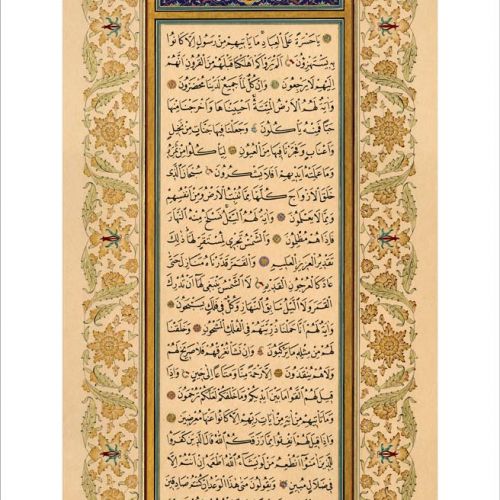 يَا حَسْرَةً عَلَى الْعِبَادِ مَا يَأْتِيهِمْ مِنْ رَسُولٍ اِلَّا كَانُوا
بِهِ يَسْتَهْزِؤُنَ اَلَمْ يَرَوْا كَمْ اَهْلَكْنَا قَبْلَهُمْ مِنَ الْقُرُونِ اَنَّهُمْ
اِلَيْهِمْ لَا يَرْجِعُونَ وَاِنْ كُلٌّ لَمَّا جَمِيعٌ لَدَيْنَا مُحْضَرُونَ
وَاٰيَةٌ لَهُمُ الْاَرْضُ الْمَيْتَةُ اَحْيَيْنَاهَا وَاَخْرَجْنَا مِنْهَا
حَبًّا فَمِنْهُ يَأْكُلُونَ وَجَعَلْنَا فِيهَا جَنَّاتٍ مِنْ نَخِيلٍ
وَاَعْنَابٍ وَفَجَّرْنَا فِيهَا مِنَ الْعُيُونِ لِيَأْكُلُوا مِنْ ثَمَرِهِ
وَمَا عَمِلَتْهُ اَيْدِيهِمْ اَفَلَا يَشْكُرُونَ سُبْحَانَ الَّذِي
خَلَقَ الْاَزْوَاجَ كُلَّهَا مِمَّا تُنْبِتُ الْاَرْضُ وَمِنْ اَنْفُسِهِمْ
وَمِمَّا لَا يَعْلَمُونَ وَاٰيَةٌ لَهُمُ الَّيْلُ نَسْلَخُ مِنْهُ النَّهَارَ
فَاِذَا هُمْ مُظْلِمُونَ وَالشَّمْسُ تَجْرِي لِمُسْتَقَرٍّ لَهَا ذٰلِكَ
تَقْدِيرُ الْعَزِيزِ الْعَلِيمِ وَالْقَمَرَ قَدَّرْنَاهُ مَنَازِلَ حَتّٰى
عَادَ كَالْعُرْجُونِ الْقَدِيمِ لَا الشَّمْسُ يَنْبَغِي لَهَا اَنْ تُدْرِكَ
الْقَمَرَ وَلَا الَّيْلُ سَابِقُ النَّهَارِ وَكُلٌّ فِي فَلَكٍ يَسْبَحُونَ
وَاٰيَةٌ لَهُمْ اَنَّا حَمَلْنَا ذُرِّيَّتَهُمْ فِي الْفُلْكِ الْمَشْحُونِ وَخَلَقْنَا
لَهُمْ مِنْ مِثْلِهِ مَا يَرْكَبُونَ وَاِنْ نَشَأْ نُغْرِقْهُمْ فَلَا صَرِيخَ لَهُمْ
وَلَا هُمْ يُنْقَذُونَ اِلَّا رَحْمَةً مِنَّا وَمَتَاعًا اِلٰى حِينٍ وَاِذَا
قِيلَ لَهُمُ اتَّقُوا مَا بَيْنَ اَيْدِيكُمْ وَمَا خَلْفَكُمْ لَعَلَّكُمْ تُرْحَمُونَ
وَمَا تَأْتِيهِمْ مِنْ اٰيَةٍ مِنْ اٰيَاتِ رَبِّهِمْ اِلَّا كَانُوا عَنْهَا مُعْرِضِينَ
وَاِذَا قِيلَ لَهُمْ اَنْفِقُوا مِمَّا رَزَقَكُمُ اللّٰهُ قَالَ الَّذِينَ كَفَرُوا
لِلَّذِينَ اٰمَنُوا اَنُطْعِمُ مَنْ لَوْ يَشَاءُ اللّٰهُ اَطْعَمَهُ اِنْ اَنْتُمْ اِلَّا
فِي ضَلَالٍ مُبِينٍ وَيَقُولُونَ مَتٰى هٰذَا الْوَعْدُ اِنْ كُنْتُمْ صَادِقِينَ